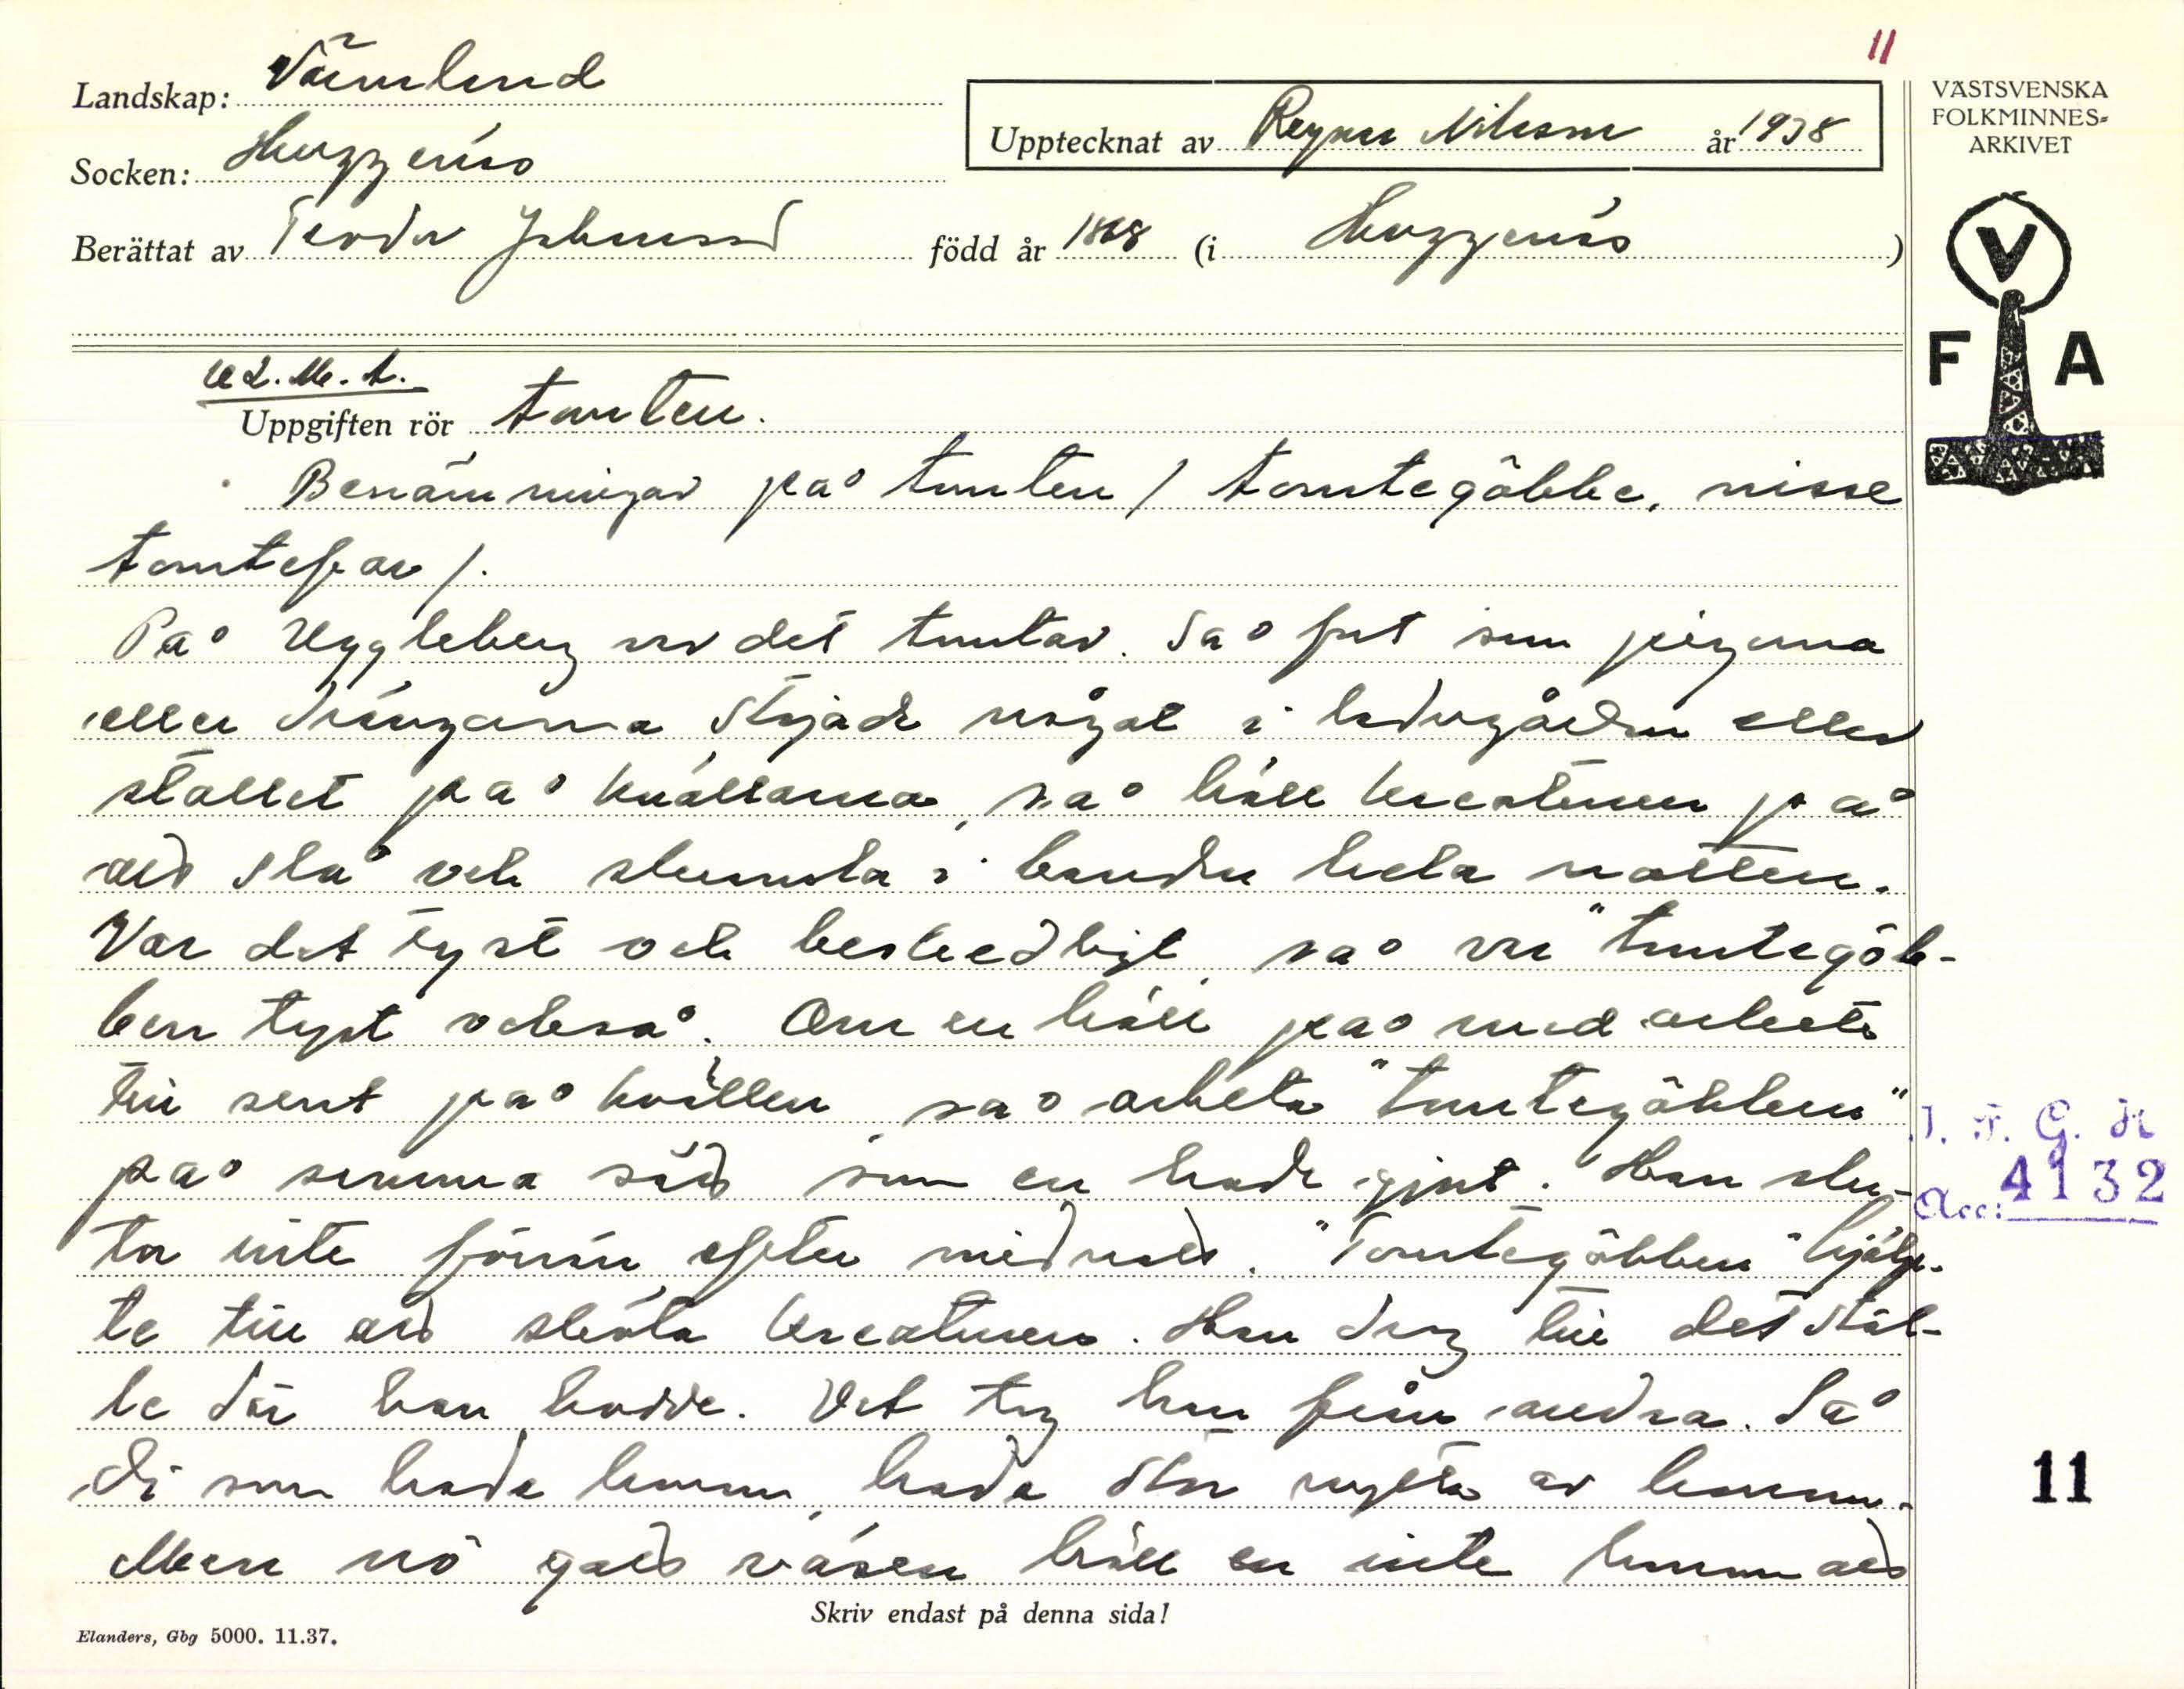 11
Landskap: Värmland
Socken: Huggenäs
Upptecknat av Ragnar Nilsson år 1938
Berättat av Teodor Johansson född år 1868 (i Huggenäs)
VÄSTSVENSKA
FOLKMINNES-
ARKIVET
V
F A
Uppgiften rör tomten.
Benämningar på tomten / tomtegöbbe, nisse
tomtefar /.
På Uggleberg var det tomtar. Så fort som pigorna
eller drängarna stojade något i ladugården eller
stallet på kvällarna, så höll kreaturen på
att slå och skramla i banden hela natten.
Var det tyst och beskedligt, så var "tomtegöb-
ben tyst också. Om en höll på med arbete
till sent på kvällen, så arbeta "tomtegöbben"
på samma sätt som en hade gjort. Han slu-
ta inte förrän efter midnatt. "Tomtegöbben" hjälp-
te till att sköta kreaturen. Han drog till det stäl-
le där han bodde. Det tog han från andra. Så
di som hade honom, hade stor nytta av honom.
Men nå gott väsen höll en inte honom att
Skriv endast på denna sida!
Elanders, Gbg 5000. 11.37.
I. F. G. H
Acc: 4132
11